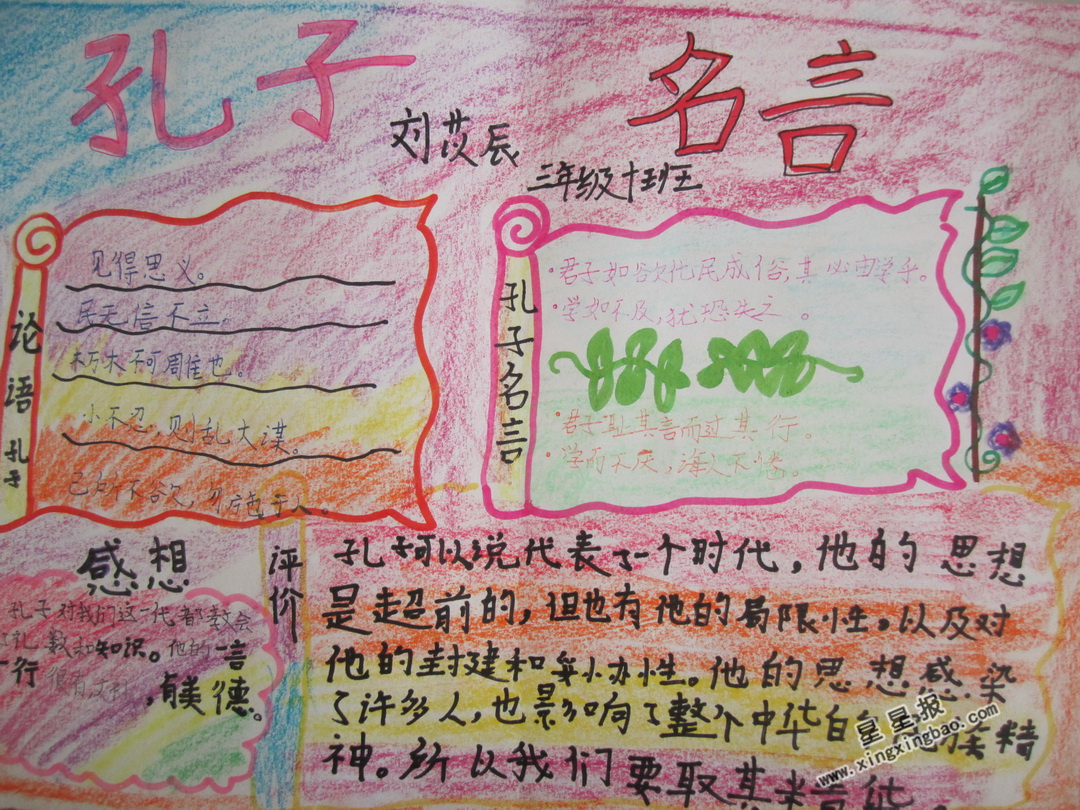 孔子 名言
刘苡辰
三年级十班
论语 孔子
见得思义。
民无信不立。
朽木不可周隹也。
小不忍,则乱大谋。
己所不欲,勿施于人。
孔子名言
·君子如欲化民成俗,其必由学乎。
·学如不及,犹恐失之。
·君子耻其言而过其行。
·学而不厌,诲人不倦。
感想
孔子对我们这一代都教会
礼 数和知识。他的一言
一行 很有 ,有美德。
评价
孔子可以说代表了一个时代,他的思想
是超前的,但也有他的局限性。以及对
他的封建和 性。他的思想感染
了许多人,也影响了整个中华 精
神。所以我们要取其
星星报
www.xingxingbao.com